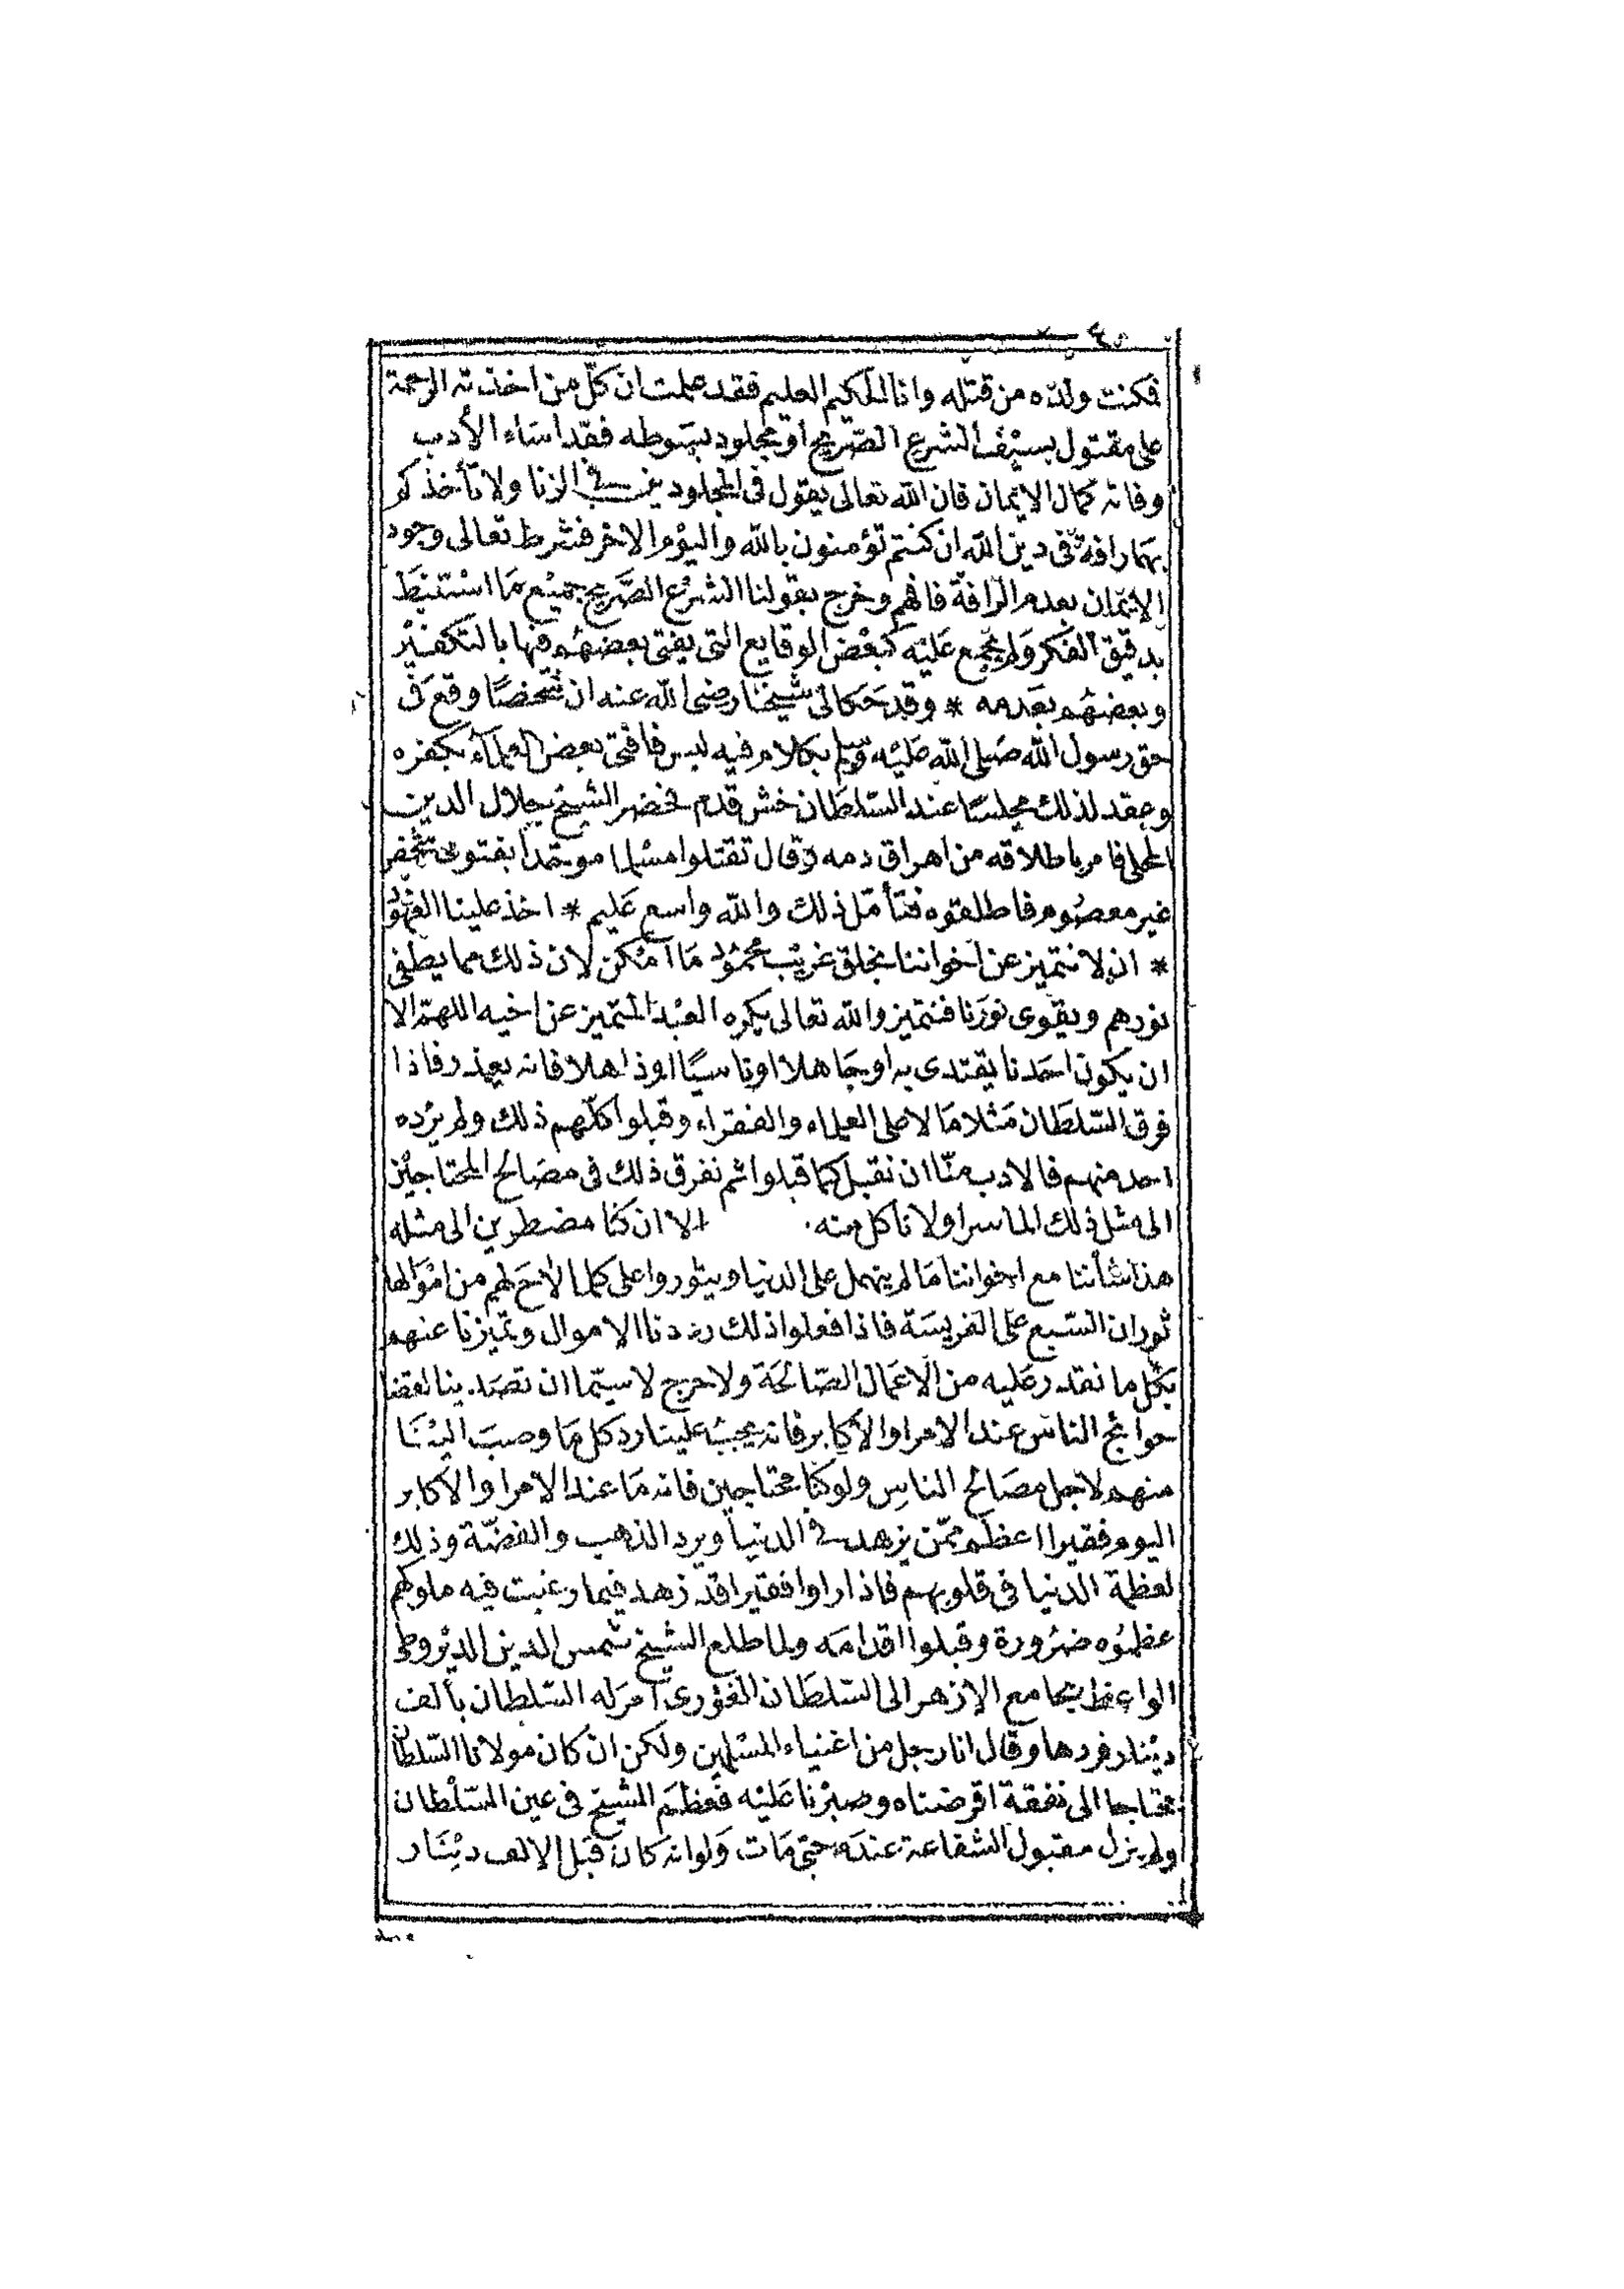 ٤٥
فكنت ولده من قتله وانا الحكيم العليم فقد علمت ان كلّ من اخذته الرحمة
على مقتول بسيْف الشرع الصّريح او مجلود بسَوطه فقد اسَاء الأدب
وفاته كمال الايمان فان الله تعالى يقول فى المجلود فى الزنا ولا تأخذكم
بهما رافة فى دين الله ان كنتم تؤمنون بالله واليوْم الاخر فشرط تعالى وجود
الايمان بعدم الرافة فافهم وخرج بقولنا الشرْع الصَّريح جميْع مَا اسْتنبَط
بدقيق الفكر ولم يجمع عَليْه كبعْض الوقايع التى يفتى بعضهُم فيها بالتكفيْر
وبعضهُم بعَدمه * وقد حَكا لى شيخنا رضى الله عنه ان شخصًا وقع فى
حق رسول الله صَلى الله عَليْه وَسلم بكلام فيه لبس فافتى بعض العلمآء بكفره
وعقد لذلك مجلسًا عند السّلطَان خش قدم فحضر الشيخ جلال الدين
المحلى فامر باطلاقه من اهراق دمه وقال تقتلوا مسلما موحّدا بفتوى شخص
غير معصُوم فاطلقوه فتأمّل ذلك والله واسع عَليم * اخذ علينا العهُود
* ان لا نتميز عن اخواننا بخلق غريْب محمُود مَا امْكن لان ذلك مما يطفى
نورهم ويقوى نورَنا فنتميز والله تعالى يكره العبْد المتميز عن اخيه اللهمّ الا
ان يكون احَدنا يقتدى به او جَاهلا او ناسيًا او ذاهلا فانه يعذر فاذا
فرق السّلطَان مَثلا مَالا على العلماء والفقراء وقبلوا كلّهم ذلك ولم يرُده
احد منهم فالادب منّا ان نقبل كما قبلوا ثم نفرق ذلك فى مصَالح المحتاجيْن
الى مثل ذلك الما سرا ولا نأكل منه. الا ان كنا مضطرين الى مثله
هذا شأننا مع اخواننا مَا لم ينهل على الدنيا ويثوروا على كلما لاحَ لهم من امْوَالها
ثوران السّبع على الفريسَة فاذا فعلوا ذلك رددنا الاموال وتميّزنا عنهم
بكل ما نقدر عَليه من الاعمَال الصّالحَة ولا حرج لا سيّما ان تصَدينا لقضا
حوائج الناس عند الامرا والاكابر فانه يجبُ علينا رد كل مَا وصبَ اليْنَا
منهم لاجل مصَالح الناس ولو كنا محتاجين فانه مَا عند الامرا والاكابر
اليوم فقيرا اعظم ممّن يزهد فى الدنيا ويرد الذهب والفضّة وذلك
لعظمة الدنيا فى قلوبهم فاذا راوا فقيرا قد زهد فيما رغبت فيه ملوكهم
عظمُوه ضرُورة وقبلوا اقدامَه ولما طلع الشيخ شمس الدين الديْروطى
الواعظ بجامع الازهر الى السّلطَان الغوْرى امرَله السّلطان بألف
ديْنار فردها وقال انا رجل من اغنياء المسْلمين ولكن ان كان مولانا السّلطان
محتاجا الى نفقة اقرضناه وصبرْنا عَليْه فعَظم الشيخ فى عين السّلْطان
ولم يزل مقبول الشفاعة عندَه حتى مَات وَلوانه كان قبل الالف ديْنَار